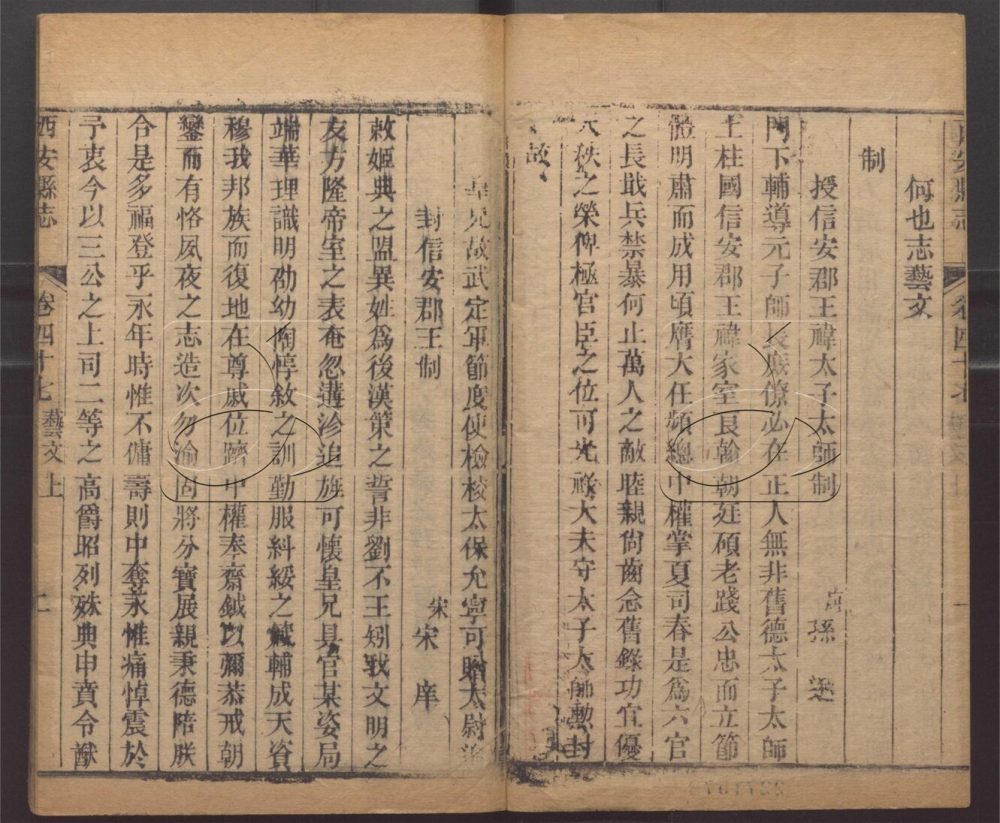 何也志藝文
制
授信安郡王禕太子太師制
孫逖
門下輔導元子師長庶僚必在正人無非舊德太子太師
上柱國信安郡王禕家室良翰朝廷碩老踐公忠而立節
體明肅而成用頃膺大任頻總中權掌夏司春是爲六官
之長戢兵禁暴何止萬人之敵睦親尙齒念舊錄功宜優
秩之榮俾極官臣之位可光祿大夫守太子太師勳封
故
西安縣志
卷四十七
藝文上
二
封信安郡王制
宋宋庠
敕姬典之盟異姓爲後漢策之誓非劉不王矧我文明之
友方隆帝室之表奄忽遘沴追旌可懷皇兄具官某姿局
端華理識明劭幼陶惇敘之訓勤服糾綏之箴輔成天資
穆我邦族而復地在尊戚位躋中權奉齋鉞以彌恭戒朝
鑾而有恪夙夜之志造次勿渝固將分寶展親秉德陪朕
合是多福登乎永年時惟不傭壽則中奪永惟痛悼震於
予衷今以三公之上司二等之高爵昭列殊典申賁令猷
皇兄故武定軍節度使檢校太保允寧可贈太尉追